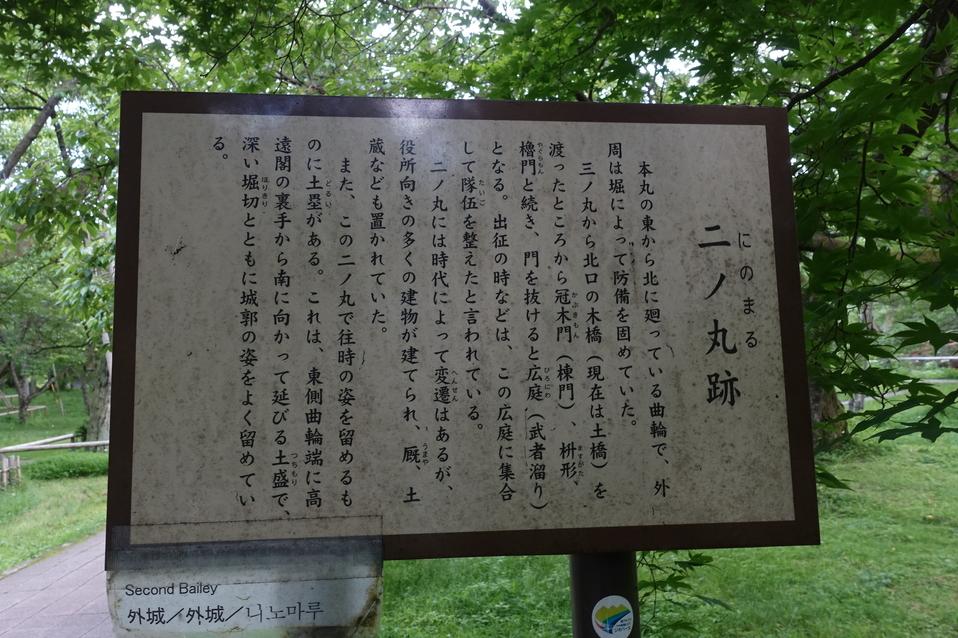 にのまる
二ノ丸跡
本丸の東から北に廻っている曲輪で、外
周は堀によって防備を固めていた。
三ノ丸から北口の木橋（現在は土橋）を
渡ったところから冠木門（棟門）、枡形、
かぶきもん
ますがた
櫓門と続き、門を抜けると広庭（武者溜り）
やぐらもん
ひろにわ
となる。出征の時などは、この広庭に集合
して隊伍を整えたと言われている。
たいご
二ノ丸には時代によって変遷はあるが、
へんせん
役所向きの多くの建物が建てられ、厩、土
うまや
蔵なども置かれていた。
また、この二ノ丸で往時の姿を留めるも
のに土塁がある。これは、東側曲輪端に高
どるい
遠閣の裏手から南に向かって延びる土盛で、
つちもり
深い堀切とともに城郭の姿をよく留めてい
ほりきり
る。
Second Bailey
外城／外城／니노마루